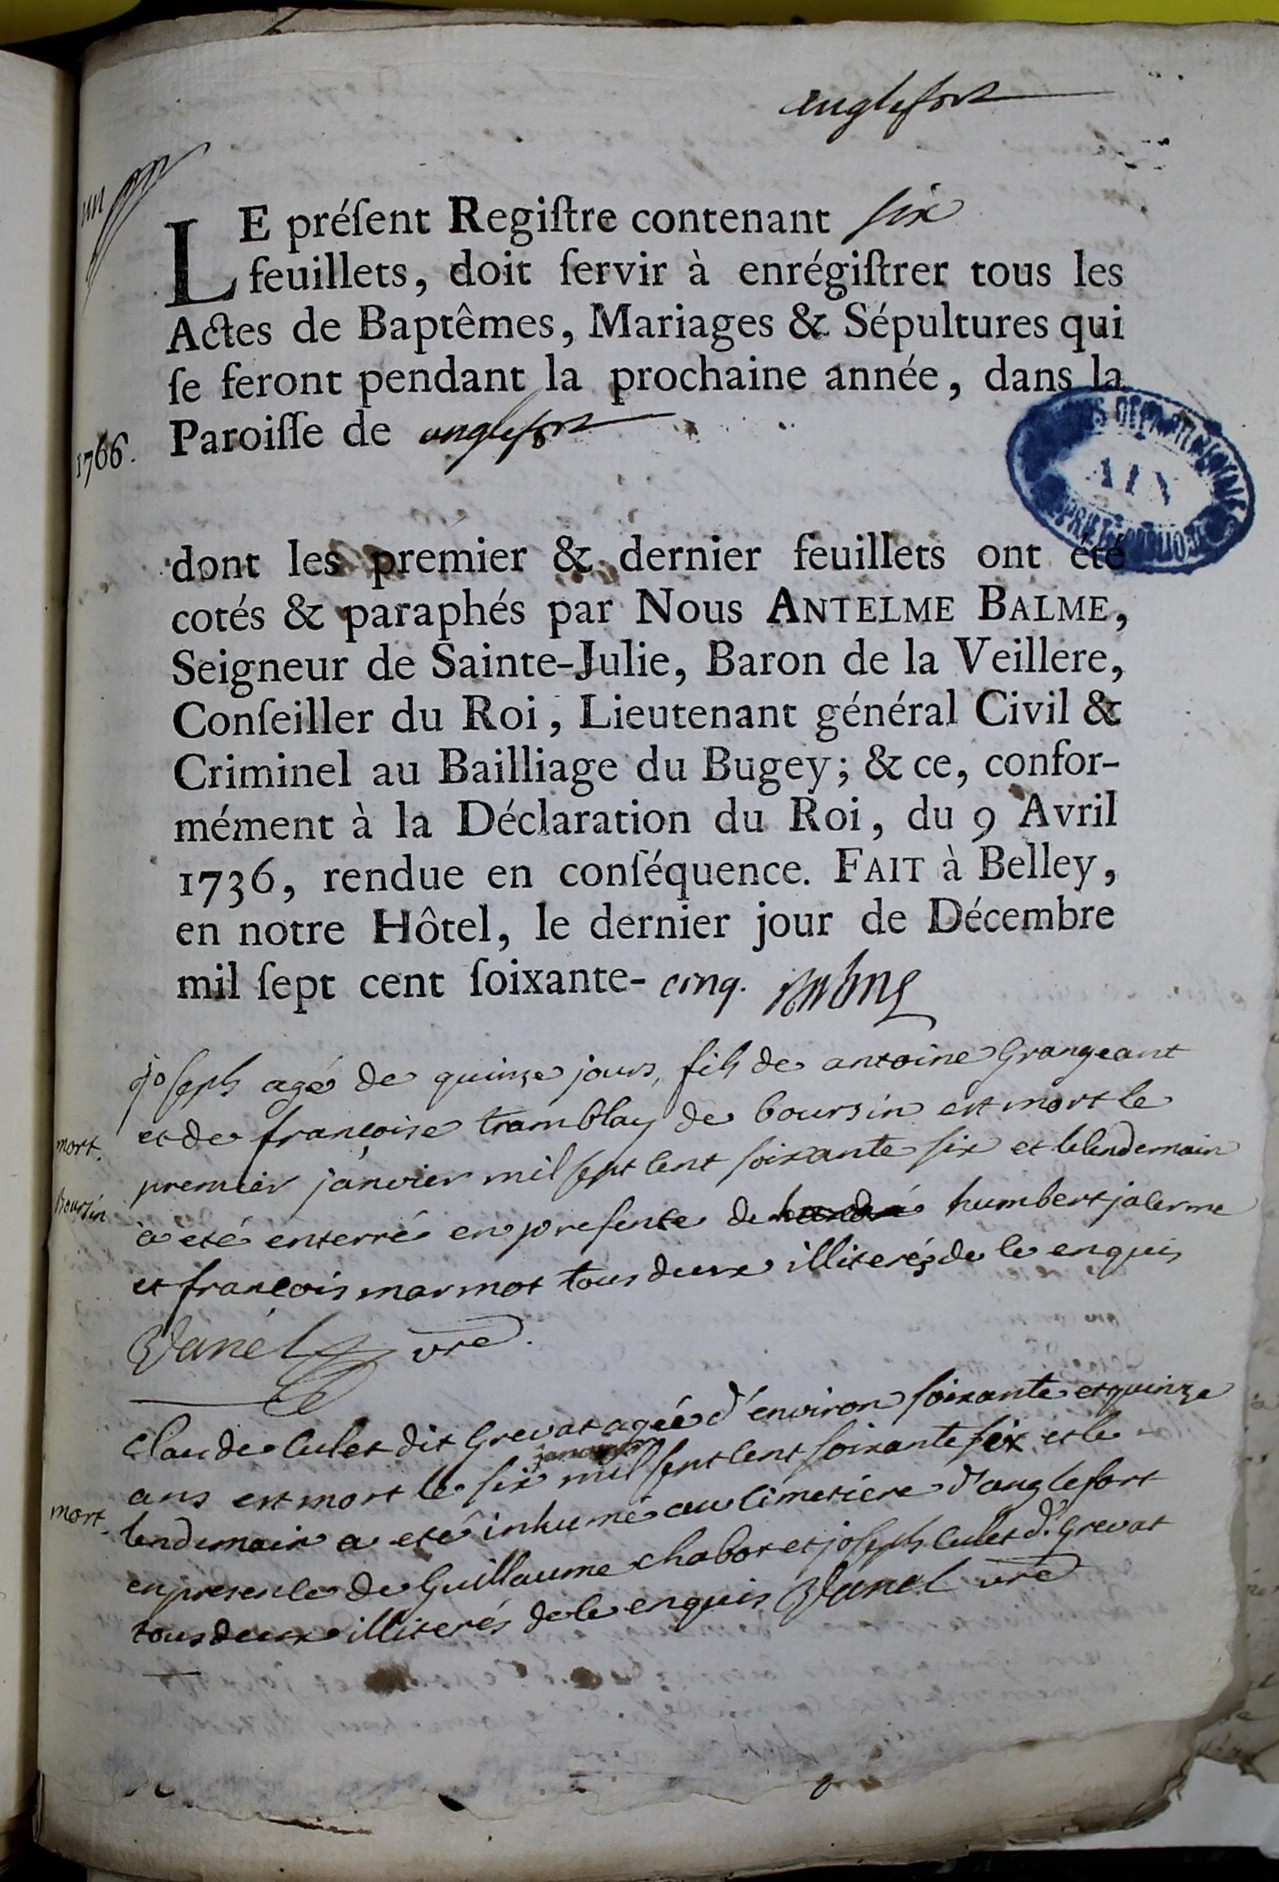 anglefort
un
LE préſent Regiſtre contenant six
feuillets, doit ſervir à enrégiſtrer tous les
Actes de Baptêmes, Mariages & Sépultures qui
ſe feront pendant la prochaine année, dans la
1766. Paroiſſe de anglefort
AIN
dont les prémier & dernier feuillets ont été
cotés & paraphés par Nous ANTELME BALME,
Seigneur de Sainte-Julie, Baron de la Veillere,
Conſeiller du Roi, Lieutenant général Civil &
Criminel au Bailliage du Bugey; & ce, confor-
mément à la Déclaration du Roi, du 9 Avril
1736, rendue en conſéquence. FAIT à Belley,
en notre Hôtel, le dernier jour de Décembre
mil ſept cent ſoixante- cinq.
joseph agé de quinze jours, fils de antoine Grangeant
et de françoise tramblay de boursin est mort le
mort. premier janvier mil sept cent soixante six et le lendemain
Boursin à eté enterré en presence de humbert jalerme
et francois marmot tous deux illiterés de ce enquis
Vanel vre
Claude Culet dit Grevat agée d'environ soixante et quinze
ans est mort le six janvier mil sept cent soixante six et le
mort. lendemain a eté inhumé au cimetiere d'anglefort
en presence de Guillaume chabot et joseph Culet dt Grevat
tous deux illiterés de ce enquis Vanel vre